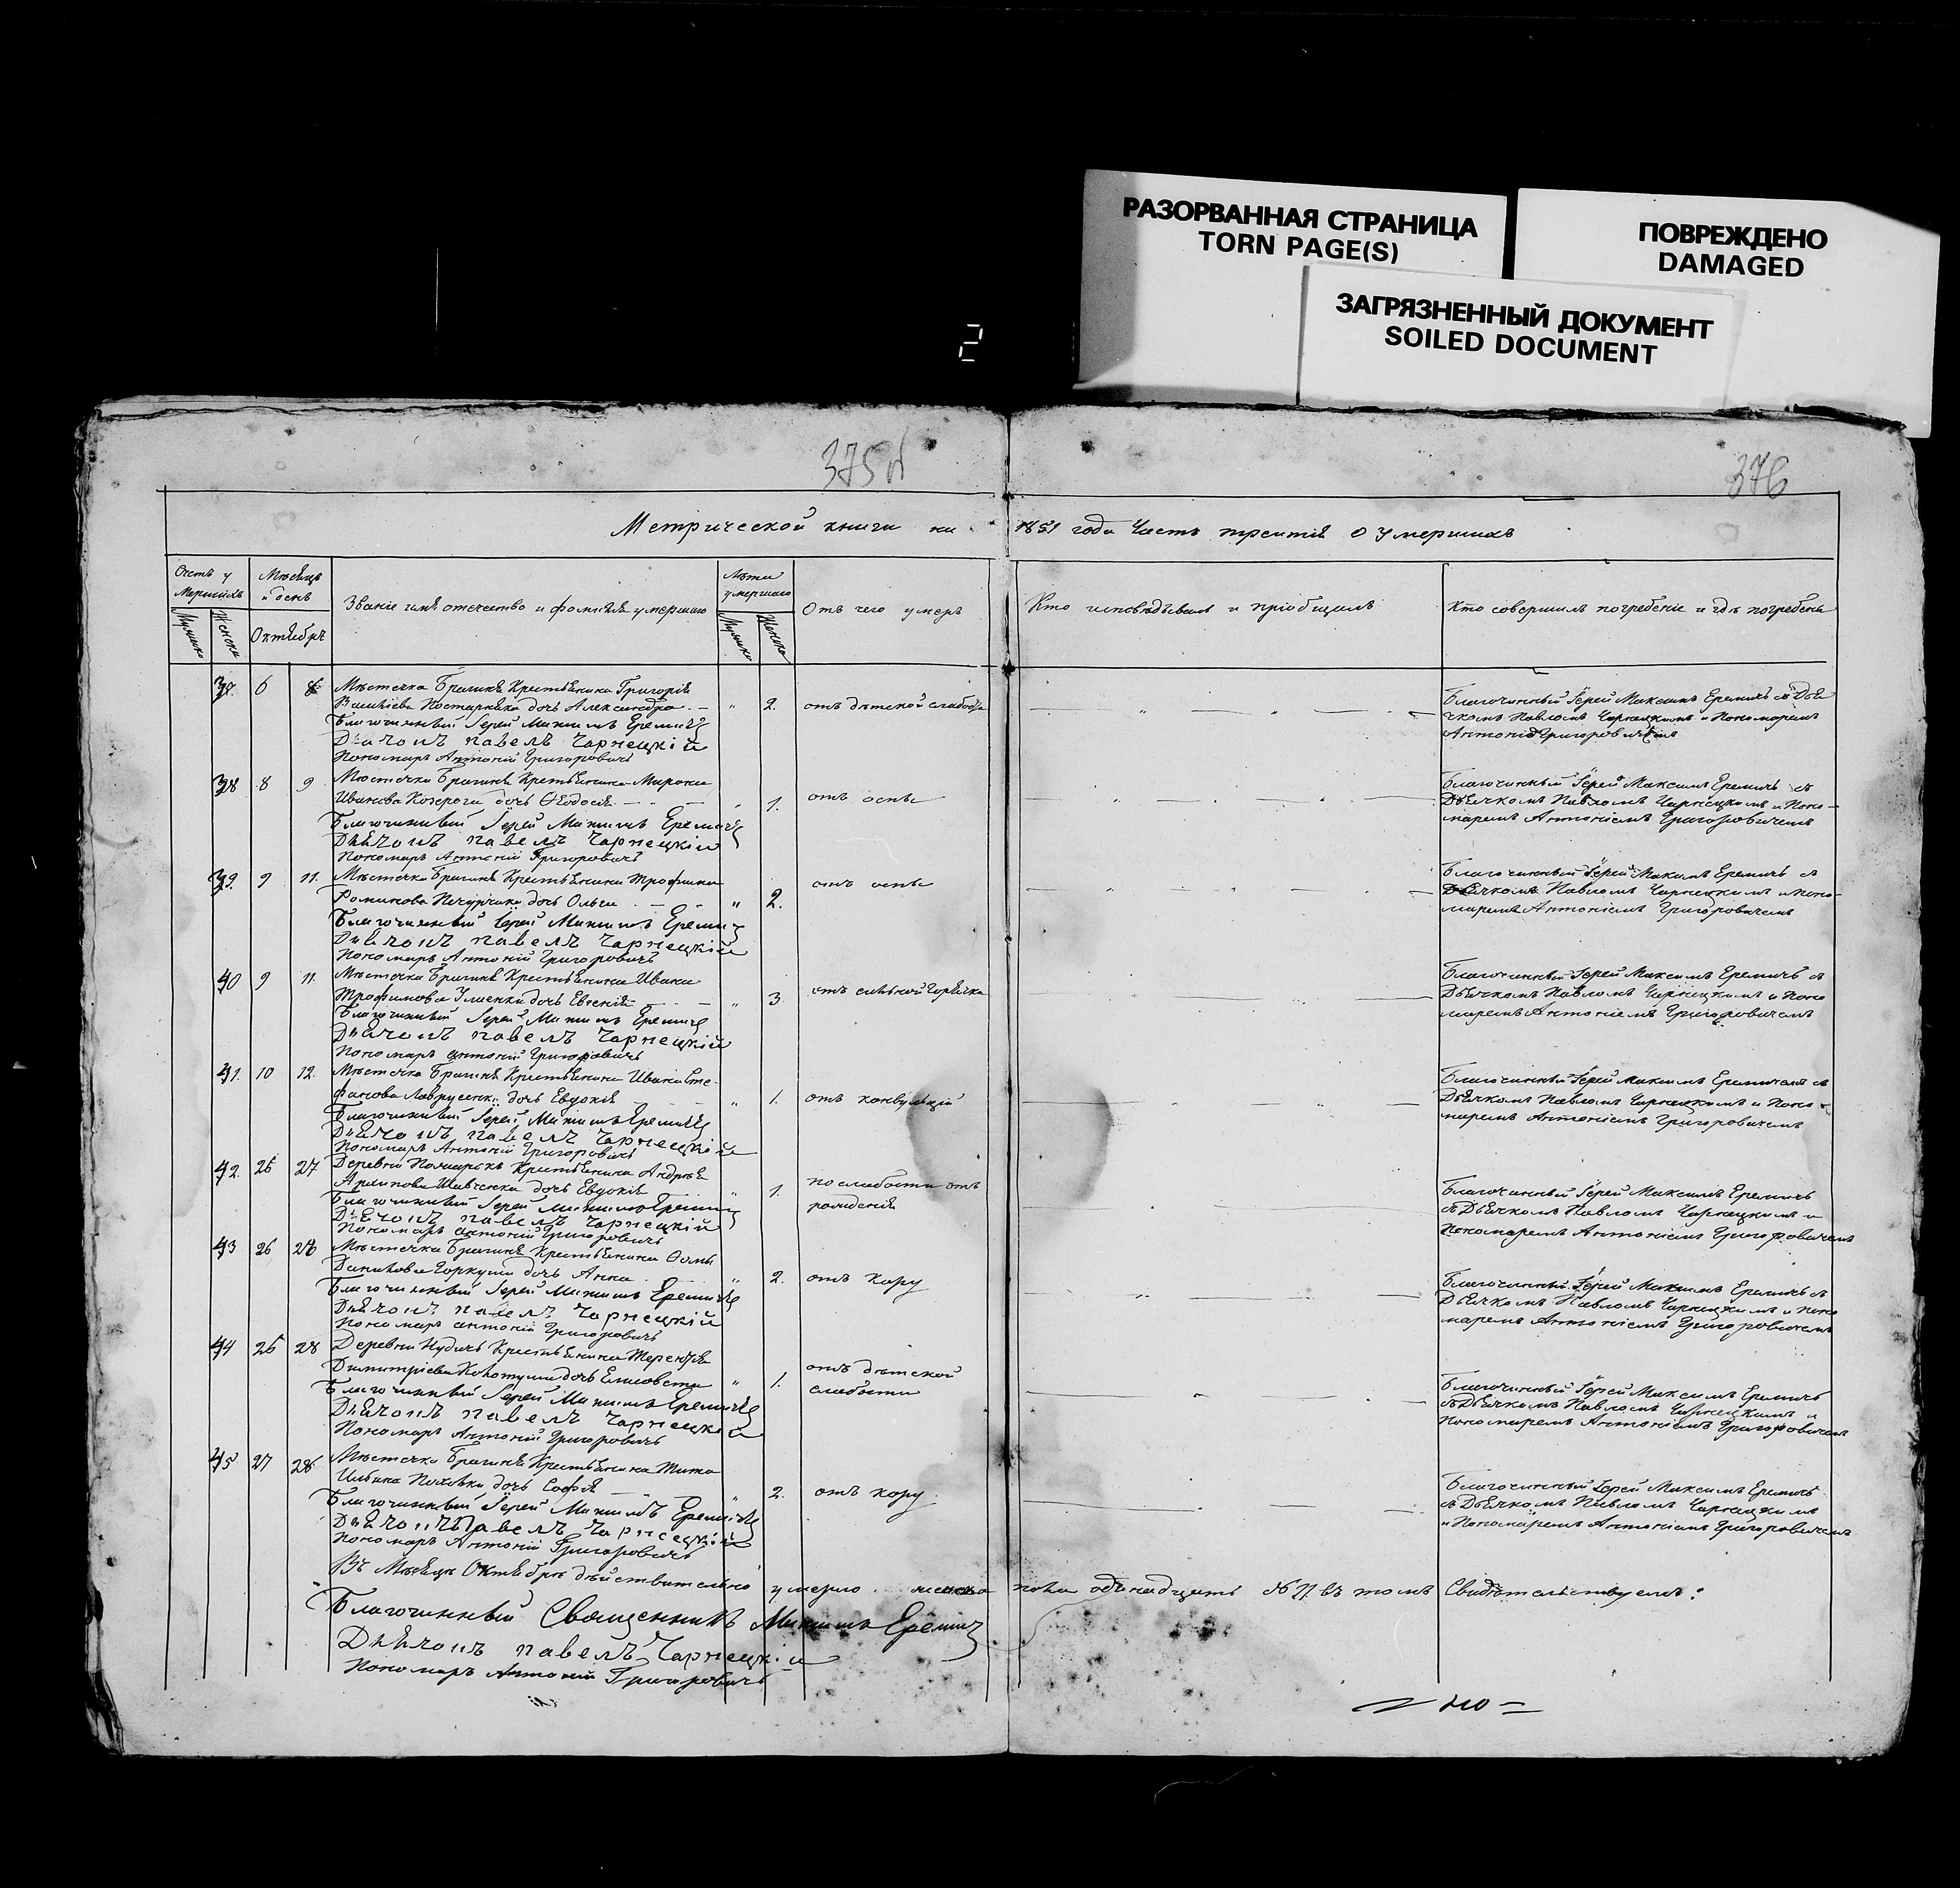 РАЗОРВАННАЯ СТРАНИЦА
TORN PAGE(S)
ПОВРЕЖДЕНО
DAMAGED
ЗАГРЯЗНЕННЫЙ ДОКУМЕНТ
SOILED DOCUMENT
2
375
376
Метрической книги на 1851 года Часть третія о умершихъ
Счетъ умершихъ
Мужеска
Женска
Мѣсяцъ и день
Октябрь
Званіе имя отечество и фамилія умершаго
Лѣта умершаго
Мужеска
Женска
Отъ чего умеръ
Кто исповѣдывалъ и пріобщалъ
Кто совершилъ погребеніе и гдѣ погребены
6 8 Мѣстечка Брагиня Крестьянина Григорія
Василіева дочь Александра 2. отъ дѣтской слабости
Благочинный Іерей Максимъ Еремичъ
Дьячокъ павелъ Чарнецкій
Пономарь Антоній Григоровичъ
Благочинный Іерей Максимъ Еремичъ съ Дья
чкомъ Павломъ Чарнецкимъ и Пономаремъ
Антоніемъ Григоровичемъ
38 8 9 Мѣстечка Брагиня Крестьянина Мирона
Иванова Козерога дочь Ѳеодосія 1. отъ оспы
Благочинный Іерей Максимъ Еремичъ
Дьячокъ павелъ Чарнецкій
Пономарь Антоній Григоровичъ
Благочинный Іерей Максимъ Еремичъ съ
Дьячкомъ Павломъ Чарнецкимъ и Поно-
маремъ Антоніемъ Григоровичемъ
39. 9 11. Мѣстечка Брагиня Крестьянина Трофима
Романова дочь Ольга 2. отъ оспы
Благочинный Іерей Максимъ Еремичъ
Дьячокъ павелъ Чарнецкій
Пономарь Антоній Григоровичъ
Благочинный Іерей Максимъ Еремичъ съ
Дьячкомъ Павломъ Чарнецкимъ и Поно-
маремъ Антоніемъ Григоровичемъ
40 9 11. Мѣстечка Брагиня Крестьянина Ивана
Трофимова дочь Евгенія 3. отъ сильной Горячки
Благочинный Іерей Максимъ Еремичъ
Дьячокъ павелъ Чарнецкій
Пономарь антоній Григоровичъ
Благочинный Іерей Максимъ Еремичъ съ
Дьячкомъ Павломъ Чарнецкимъ и Поно
маремъ Антоніемъ Григоровичемъ
41. 10 12. Мѣстечка Брагиня Крестьянина Ивана Сте-
фанова Лаврусенки дочь Евдокія 1. отъ конвульцій
Благочинный Іерей Максимъ Еремичъ
Дьячокъ павелъ Чарнецкій
Пономарь Антоній Григоровичъ
Благочинный Іерей Максимъ съ
Дьячкомъ Павломъ Чарнецкимъ и Поно-
маремъ Антоніемъ Григоровичемъ
42. 26 27 Деревни Крестьянина Андрея
Архипова Шевченка дочь Евдокія 1. по слабости отъ
рожденія
Благочинный Іерей Максимъ Еремичъ
Дьячокъ павелъ Чарнецкій
Пономарь антоній Григоровичъ
Благочинный Іерей Максимъ Еремичъ
съ Дьячкомъ Павломъ Чарнецкимъ и
Пономаремъ Антоніемъ Григоровичемъ
43 26 28 Мѣстечка Брагиня Крестьянина Ѳомы
Данилова дочь Анна 2. отъ кору
Благочинный Іерей Максимъ Еремичъ
Дьячокъ павелъ Чарнецкій
Пономарь антоній Григоровичъ
Благочинный Іерей Максимъ Еремичъ съ
Дьячкомъ Павломъ Чарнецкимъ и Поно
маремъ Антоніемъ Григоровичемъ
44 26 28 Деревни Крестьянина Терентія
Димитріева дочь Елисовета 1. отъ дѣтской
слабости
Благочинный Іерей Максимъ Еремичъ
Дьячокъ павелъ Чарнецкій
Пономарь Антоній Григоровичъ
Благочинный Іерей Максимъ Еремичъ
съ Дьячкомъ Павломъ Чарнецкимъ и
Пономаремъ Антоніемъ Григоровичемъ
45 27 28 Мѣстечка Брагиня Крестьянина
дочь Софія 2. отъ кору
Благочинный Іерей Максимъ Еремичъ
Дьячокъ Павелъ Чарнецкій
Пономарь Антоній Григоровичъ
Благочинный Іерей Максимъ Еремичъ
съ Дьячкомъ Павломъ Чарнецкимъ
и Пономаремъ Антоніемъ Григоровичемъ
Въ Мѣсяцѣ Октябрѣ дѣйствительно умерло женска пола одинадцать въ томъ Свидѣтельствуемъ:
Благочинный Священникъ Максимъ Еремичъ
Дьячокъ павелъ Чарнецкій
Пономарь Антоній Григоровичъ